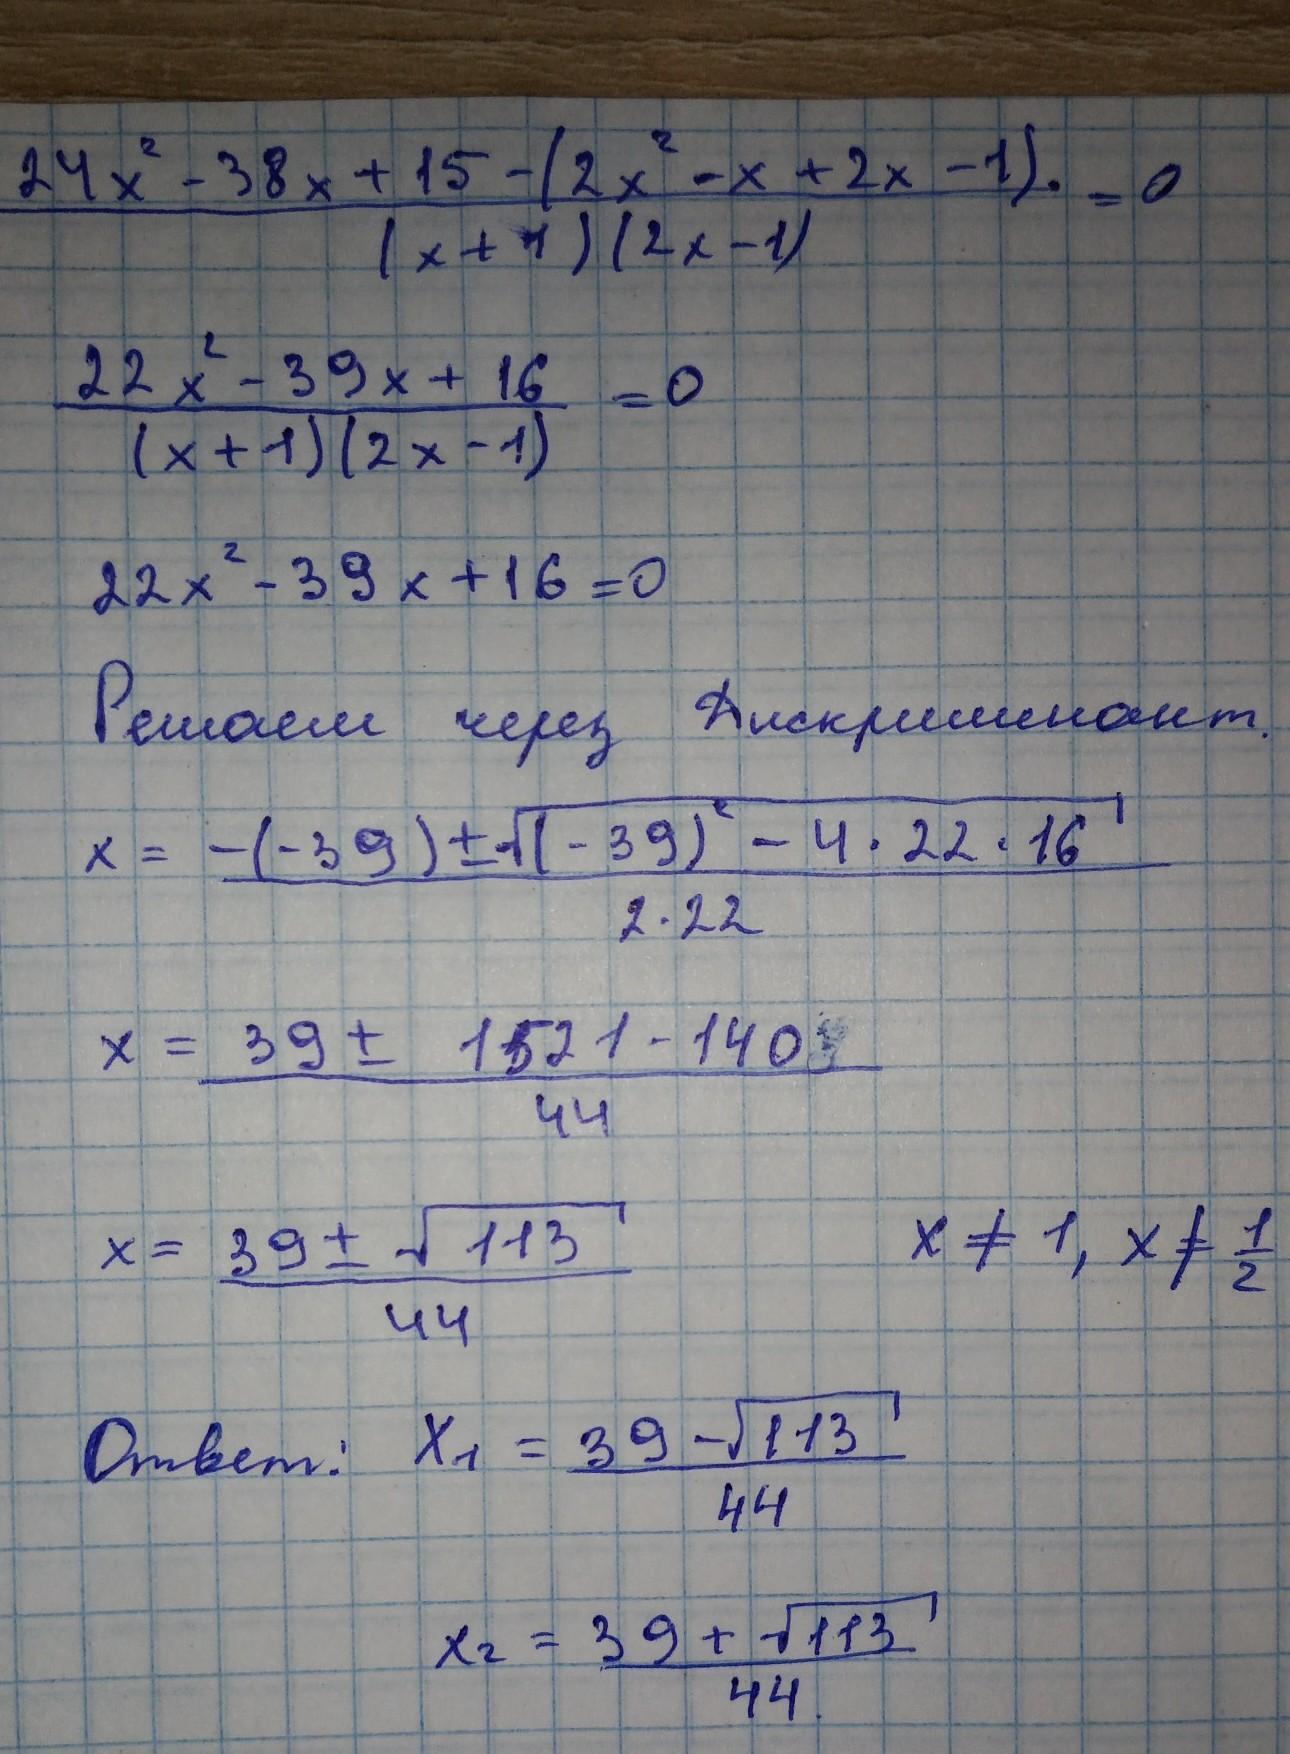 24x² - 38x + 15 - (2x² - x + 2x - 1). = 0
(x + 1)(2x - 1)
22x² - 39x + 16 = 0
(x + 1)(2x - 1)
22x² - 39x + 16 = 0
Решаем через Дискриминант.
x = -(-39) ± √(-39)² - 4·22·16
2·22
x = 39 ± 1521 - 140
44
x = 39 ± √113 x ≠ 1, x ≠ 1/2
44
Ответ: X₁ = 39 - √113
44
x₂ = 39 + √113
44.